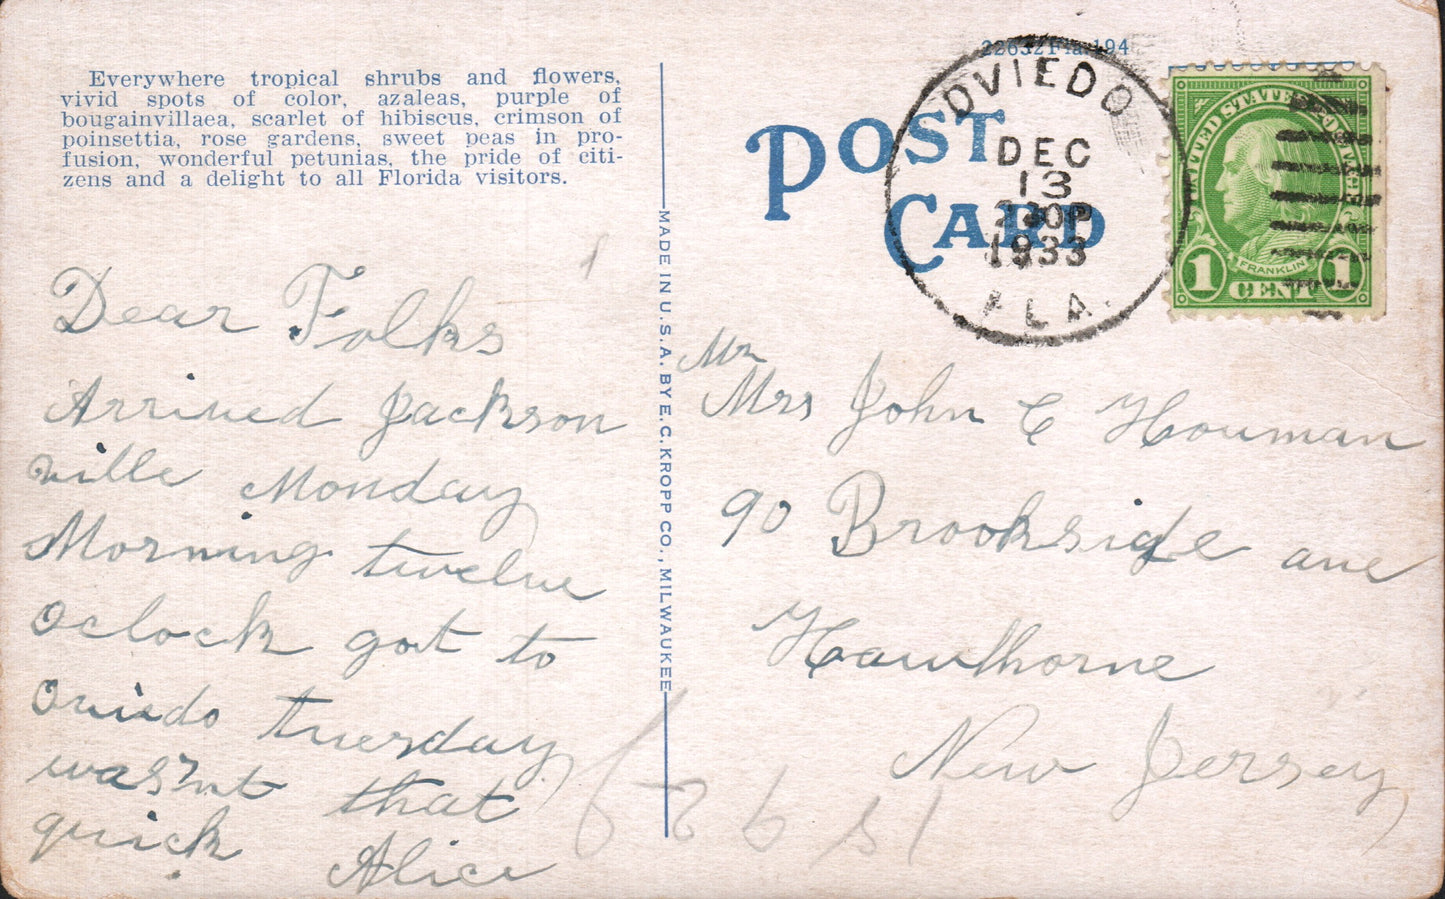 22632 Fla 194
Everywhere tropical shrubs and flowers,
vivid spots of color, azaleas, purple of
bougainvillaea, scarlet of hibiscus, crimson of
poinsettia, rose gardens, sweet peas in pro-
fusion, wonderful petunias, the pride of citi-
zens and a delight to all Florida visitors.
POST
CARD
OVIEDO
DEC
13
1933
FLA.
UNITED STATES POSTAGE
FRANKLIN
1 CENT 1
MADE IN U.S.A. BY E.C. KROPP CO., MILWAUKEE
Dear Folks
Arrived Jackson
ville Monday
Morning twelve
Oclock got to
Oviedo tuesday
was'nt that
quick Alice
Mr
Mrs John C Houman
90 Brookside ave
Hawthorne
New Jersey